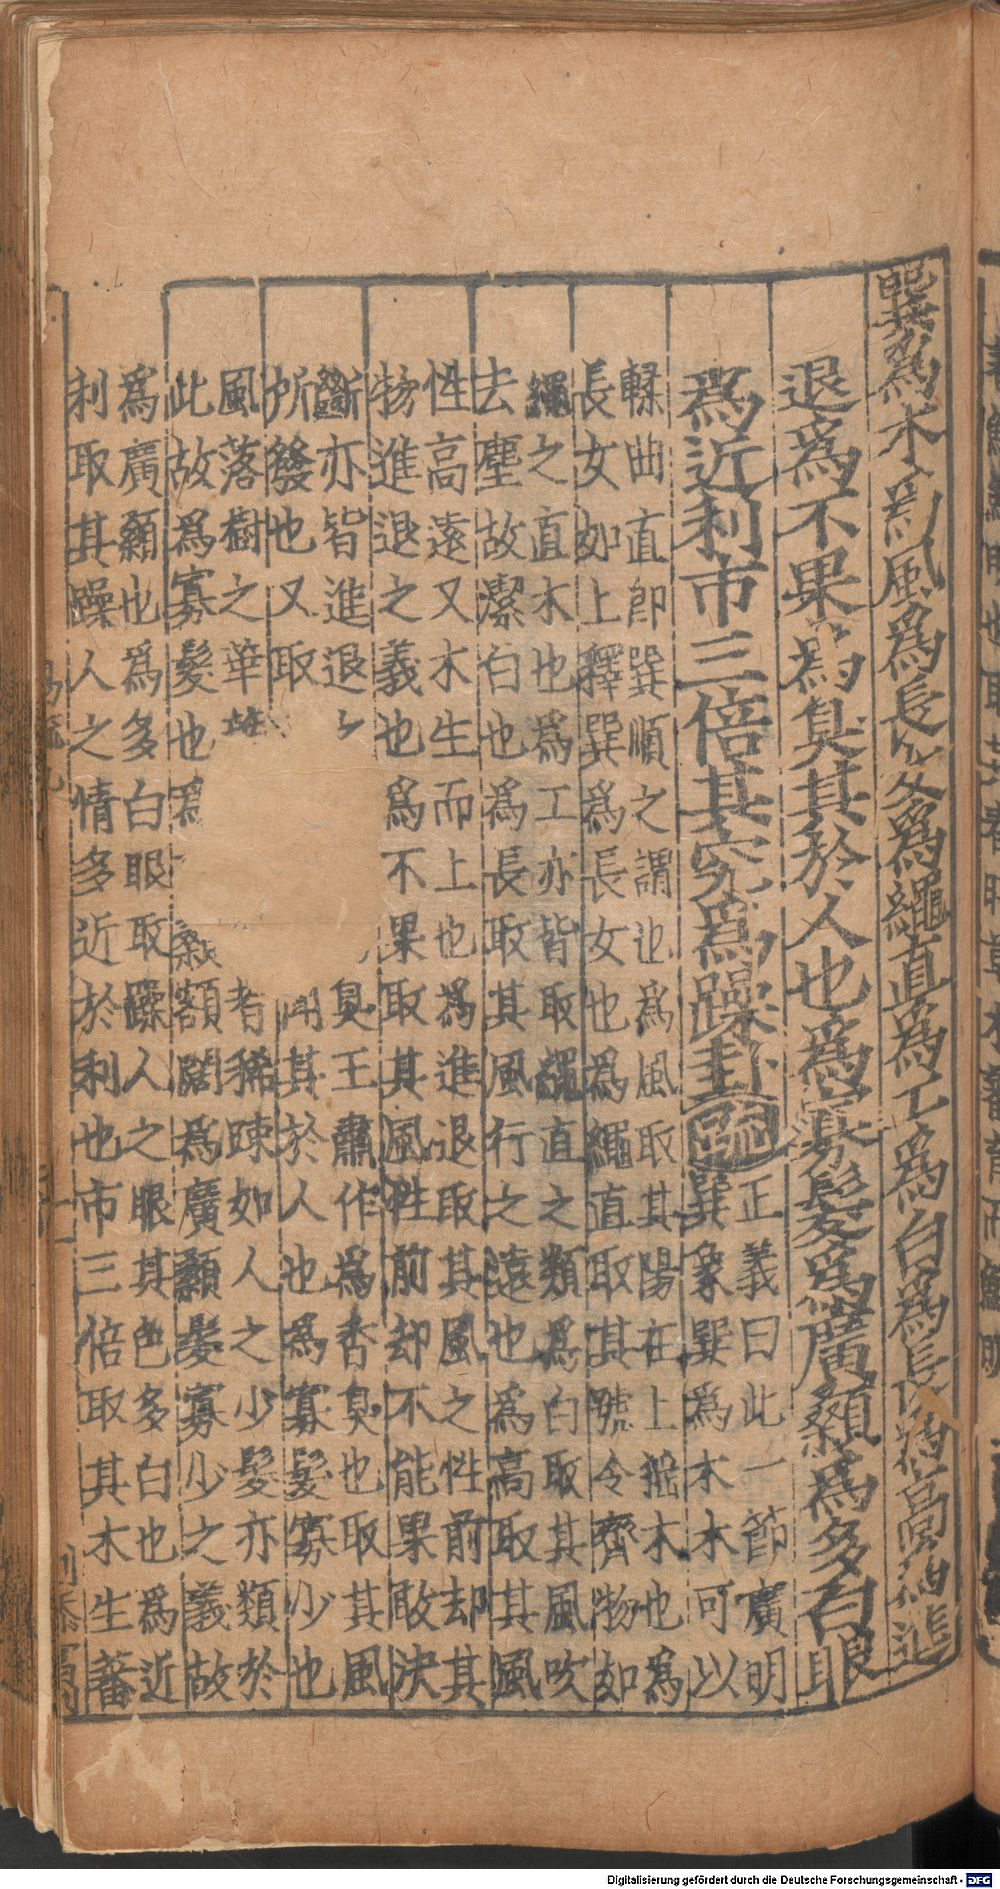 巽爲木爲風爲長女爲繩直爲工爲白爲長爲高爲進
退爲不果爲臭其於人也爲寡髮爲廣顙爲多白眼
爲近利市三倍其究爲躁卦疏
正義曰此一節廣明
巽象巽爲木木可以
輮曲直即巽順之謂也爲風取其陽在上揺木也爲
長女如上釋巽爲長女也爲繩直取其號令齊物如
繩之直木也爲工亦皆取繩直之類爲白取其風吹
去塵故潔白也爲長取其風行之遠也爲高取其風
性高遠又木生而上也爲進退取其風之性前却其
物進退之義也爲不果取其風性前却不能果敢決
斷亦皆進退臭王肅作爲香臭也取其風
所發也又取其於人也爲寡髮寡少也
風落樹之華者稀踈如人之少髮亦類於
此故爲寡髮也爲顙額闊爲廣顙髮寡少之義故
爲廣顙也爲多白眼取躁人之眼其色多白也爲近
利取其躁人之情多近於利也市三倍取其木生蕃
Digitalisierung gefördert durch die Deutsche Forschungsgemeinschaft - DFG